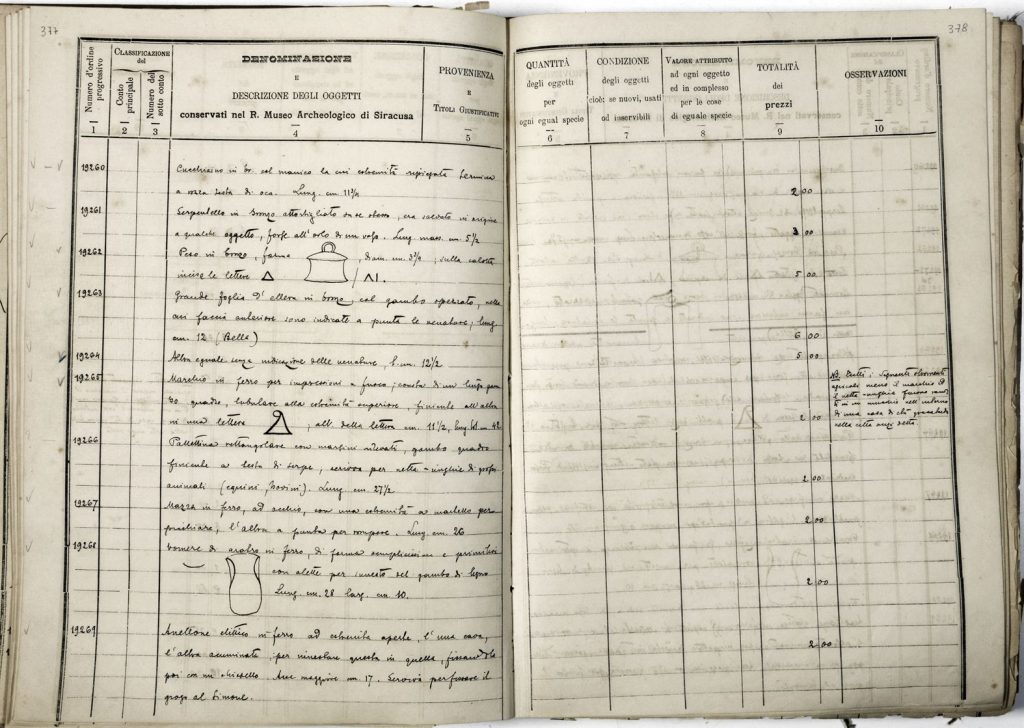 377
378
Numero d'ordine progressivo
CLASSIFICAZIONE
del
Conto principale
Numero del sotto conto
DENOMINAZIONE
E
DESCRIZIONE DEGLI OGGETTI
conservati nel R. Museo Archeologico di Siracusa
PROVENIENZA
E
TITOLI GIUSTIFICATIVI
1 2 3 4 5
QUANTITÀ
degli oggetti
per
ogni egual specie
CONDIZIONE
degli oggetti
cioè: se nuovi, usati
od inservibili
VALORE ATTRIBUITO
ad ogni oggetto
ed in complesso
per le cose
di eguale specie
TOTALITÀ
dei
prezzi
OSSERVAZIONI
6 7 8 9 10
19260 Cucchiaino in br. col manico la cui estremità ripiegata termina
a rozza testa di oca. Lung. cm. 11 3/4
2 00
19261 Serpentello in bronzo attortigliato su se stesso, era saldato in origine
a qualche oggetto, forse all'orlo di un vaso. Lung. mass. cm. 5 1/2
3 00
19262 Peso in bronzo, forma , diam. cm. 3 3/4; sulla calotta
incise le lettere Δ / Λ1.
5 00
19263 Grande foglia d'ellera in bronzo col gambo spezzato, nella
cui faccia anteriore sono indicate a punta le venature; lung.
cm. 12 (Bella)
6 00
19264 Altra eguale senza indicazione delle venature, l. cm. 12 1/2
5 00
19265 Marchio in ferro per impressioni a fuoco; consta di un lungo gam
bo quadro, tubulare alla estremità superiore, finiente all'altra
in una lettera , alt. della lettera cm. 11 1/2, lung. tot. cm 42
2 00
NB. Tutti i seguenti strumenti
agricoli meno il marchio ed
il netta-unghie furono
di una casa di
nella città
19266 Pallettina rettangolare con margini rilevati, gambo quadro
finiente a testa di serpe, serviva per netta-unghie di grossi
animali (equini, bovini). Lung. cm. 27 1/2
2 00
19267 Mazza in ferro, ad occhio, con una estremità a martello per
picchiare, l'altra a punta per rompere. Lung. cm. 26
2 00
19268 Vomere di aratro in ferro, di forma semplicissima e primitiva
con alette per innesto del gambo di legno
Lung. cm. 28 larg. cm. 10.
2 00
19269 Anellone elittico in ferro ad estremità aperte, l'una cava,
l'altra acuminata per innestare questa in quella, fissandola
poi con un chiodello. Asse maggiore cm. 17. Serviva per fissare il
giogo al timone.
2 00